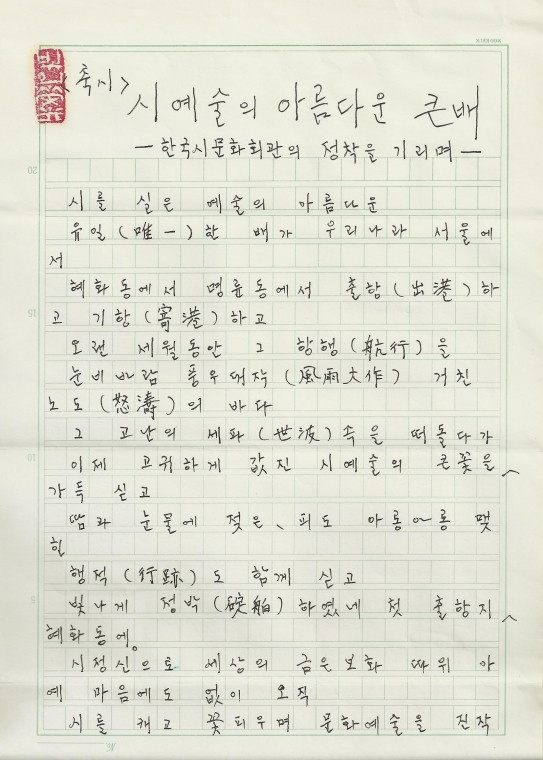 <축시>
시예술의 아름다운 큰배
— 한국시문화회관의 정착을 기리며 —
시를 실은 예술의 아름다운
유일(唯一)한 배가 우리나라 서울에
서
혜화동에서 명륜동에서 출항(出港)하
고 기항(寄港)하고
오랜 세월동안 그 항행(航行)을
눈비바람 풍우대작(風雨大作) 거친
노도(怒濤)의 바다
그 고난의 세파(世波)속을 떠돌다가
이제 고귀하게 값진 시예술의 큰꽃을
가득 싣고
땀과 눈물에 젖은, 피도 아롱아롱 맺
힌
행적(行跡)도 함께 싣고
빛나게 정박(碇舶)하였네 첫 출항지
혜화동에。
시정신으로 세상의 금은보화 따위 아
예 마음에도 없이 오직
시를 캐고 꽃피우며 문화예술을 진작
20
15
10
5